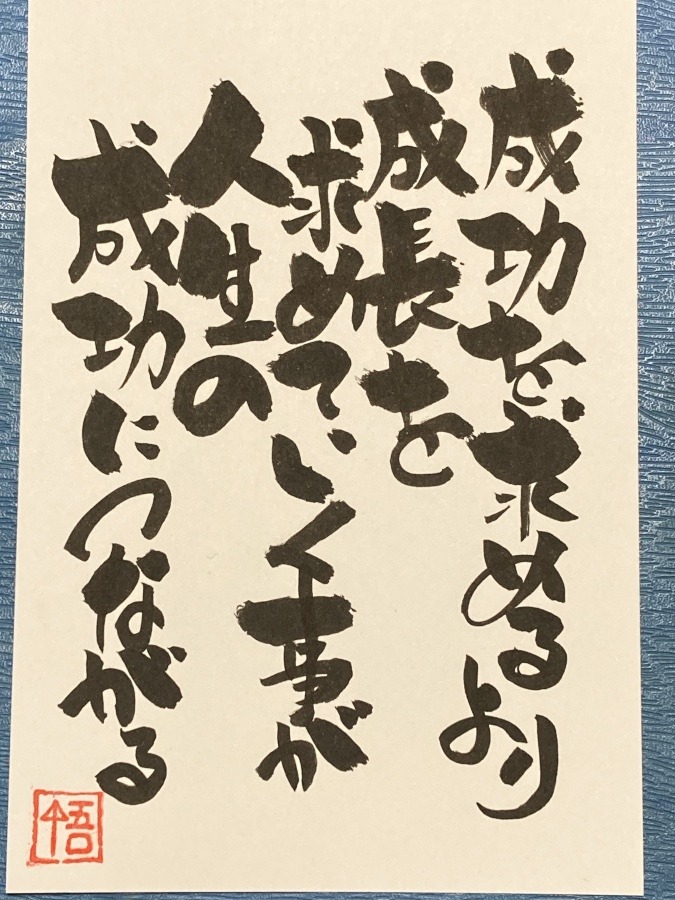 成功を求めるより
成長を
求めていく事が
人生の
成功につながる
悟